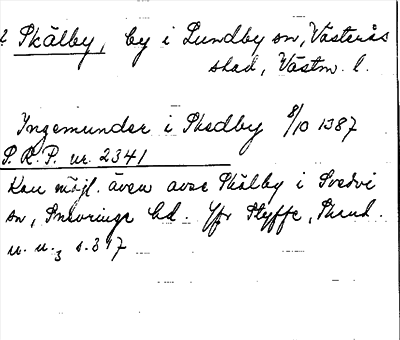 ? Skälby, by i Lundby sn, Västerås
stad, Västm. l.
Ingemunder i Skedby 8/10 1387
S.R.P. nr. 2341
Kan möjl. även avse Skälby i Svedvi
sn, Snevringe hd. Jfr Styffe, Skand.
u. u.3 s. 317